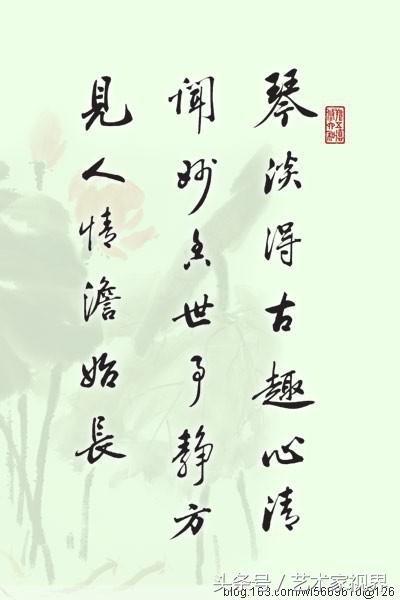 琴淡得古趣心清
聞妙香世事静方
見人情澹始長
头条号 / 艺术家视界
blog.163.com/wl566961d@126